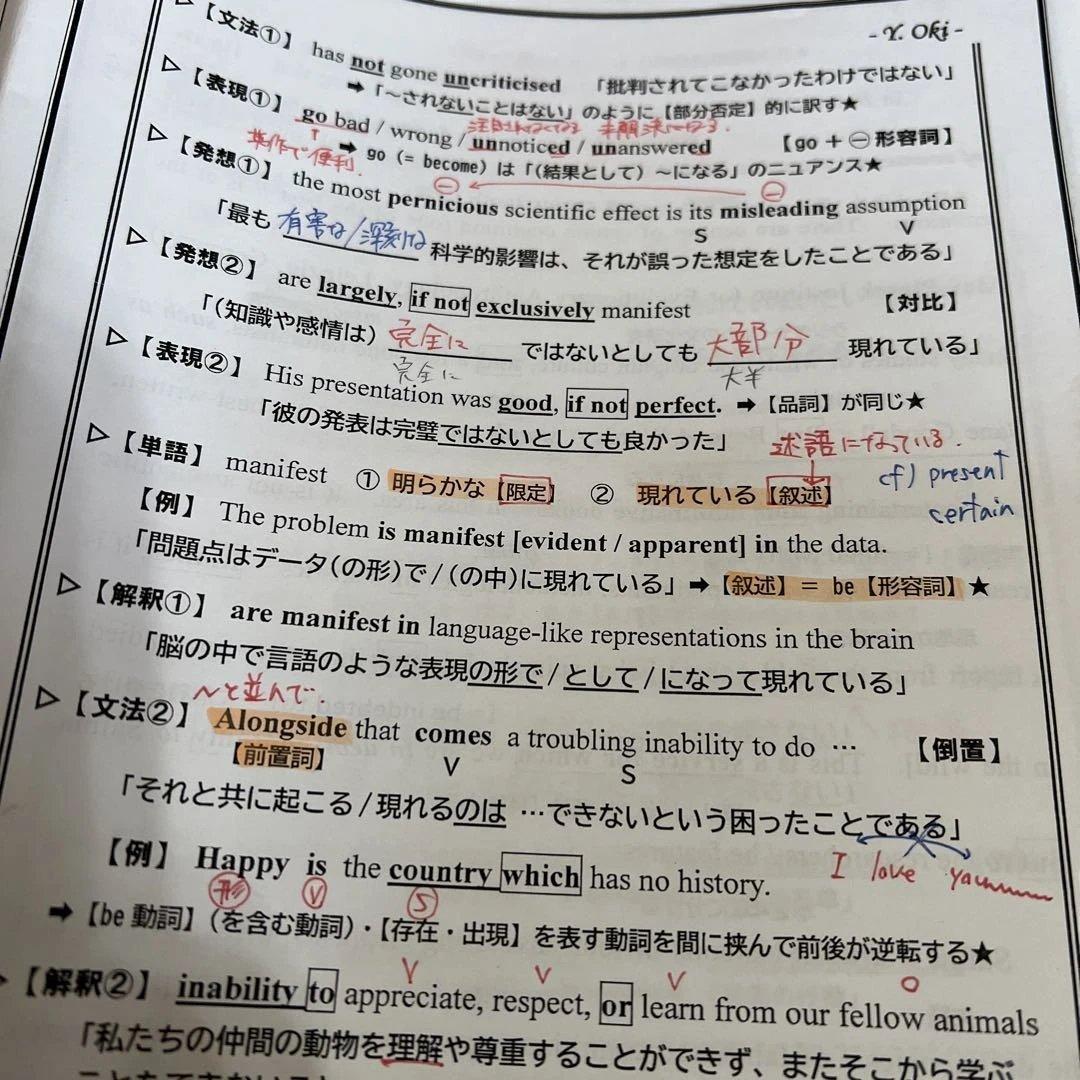 - Y. Oki -
▷【文法①】 has not gone uncriticised 「批判されてこなかったわけではない」
➡「～されないことはない」のように【部分否定】的に訳す★
注目されなくなる 未解決になる.
▷【表現①】 go bad / wrong / unnoticed / unanswered 【go + ㊀ 形容詞】
英作で便利.
➡ go (= become) は「(結果として) ～になる」のニュアンス★
▷【発想①】 the most pernicious scientific effect is its misleading assumption
㊀ ㊀
S V
「最も 有害な/深刻な 科学的影響は、それが誤った想定をしたことである」
▷【発想②】 are largely, if not exclusively manifest 【対比】
「(知識や感情は) 完全に ではないとしても 大部分 現れている」
完全に 大半
▷【表現②】 His presentation was good, if not perfect. ➡【品詞】が同じ★
「彼の発表は完璧ではないとしても良かった」
述語になっている.
▷【単語】 manifest ① 明らかな【限定】 ② 現れている【叙述】
cf) present
certain
【例】 The problem is manifest [evident / apparent] in the data.
「問題点はデータ(の形)で / (の中)に現れている」➡【叙述】= be【形容詞】★
▷【解釈①】 are manifest in language-like representations in the brain
「脳の中で言語のような表現の形で / として / になって現れている」
～と並んで
▷【文法②】 Alongside that comes a troubling inability to do … 【倒置】
【前置詞】 V S
「それと共に起こる / 現れるのは …できないという困ったことである」
【例】 Happy is the country which has no history.
形 V S
I love
➡【be 動詞】(を含む動詞)・【存在・出現】を表す動詞を間に挟んで前後が逆転する★
V V V O
【解釈②】 inability to appreciate, respect, or learn from our fellow animals
「私たちの仲間の動物を理解や尊重することができず、またそこから学ぶ